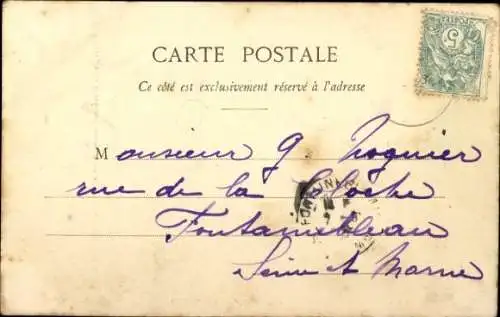 CARTE POSTALE
Ce côté est exclusivement réservé à l'adresse
Monsieur G. Noguier
rue de la Cloche
Fontainebleau
Seine et Marne
5